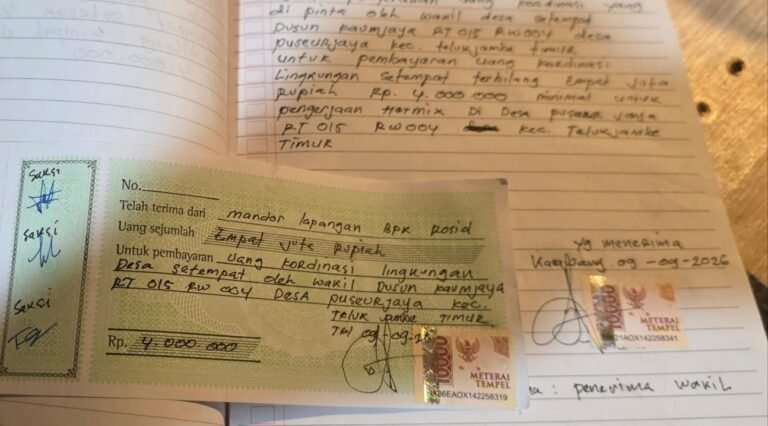 uang kordinasi yang
di pinta oleh wakil desa setempat
Dusun kaumjaya RT 015 RW 004 desa
puseurjaya kec. teluk jambe timur
untuk pembayaran uang kordinasi
Lingkungan setempat terbilang Empat juta
rupiah Rp. 4.000.000 minimal untuk
pengerjaan Hotmix Di Desa puseur jaya
RT 015 RW 004 kec. Teluk jambe
TIMUR
yg menerima
Karawang 09-09-2026
10000
METERAI
TEMPEL
21AOX142258341
: penerima wakil
saksi
saksi
saksi
No.
Telah terima dari mandor lapangan BPK Rosid
Uang sejumlah Empat jute Rupiah
Untuk pembayaran uang kordinasi lingkungan
Desa setempat oleh wakil Dusun kaumjaya
RT 015 RW 004 DESA puseurjaya kec.
Teluk jambe TIMUR
09-09-2
Rp. 4.000.000
10000
METERAI
TEMPEL
EAOX142258319